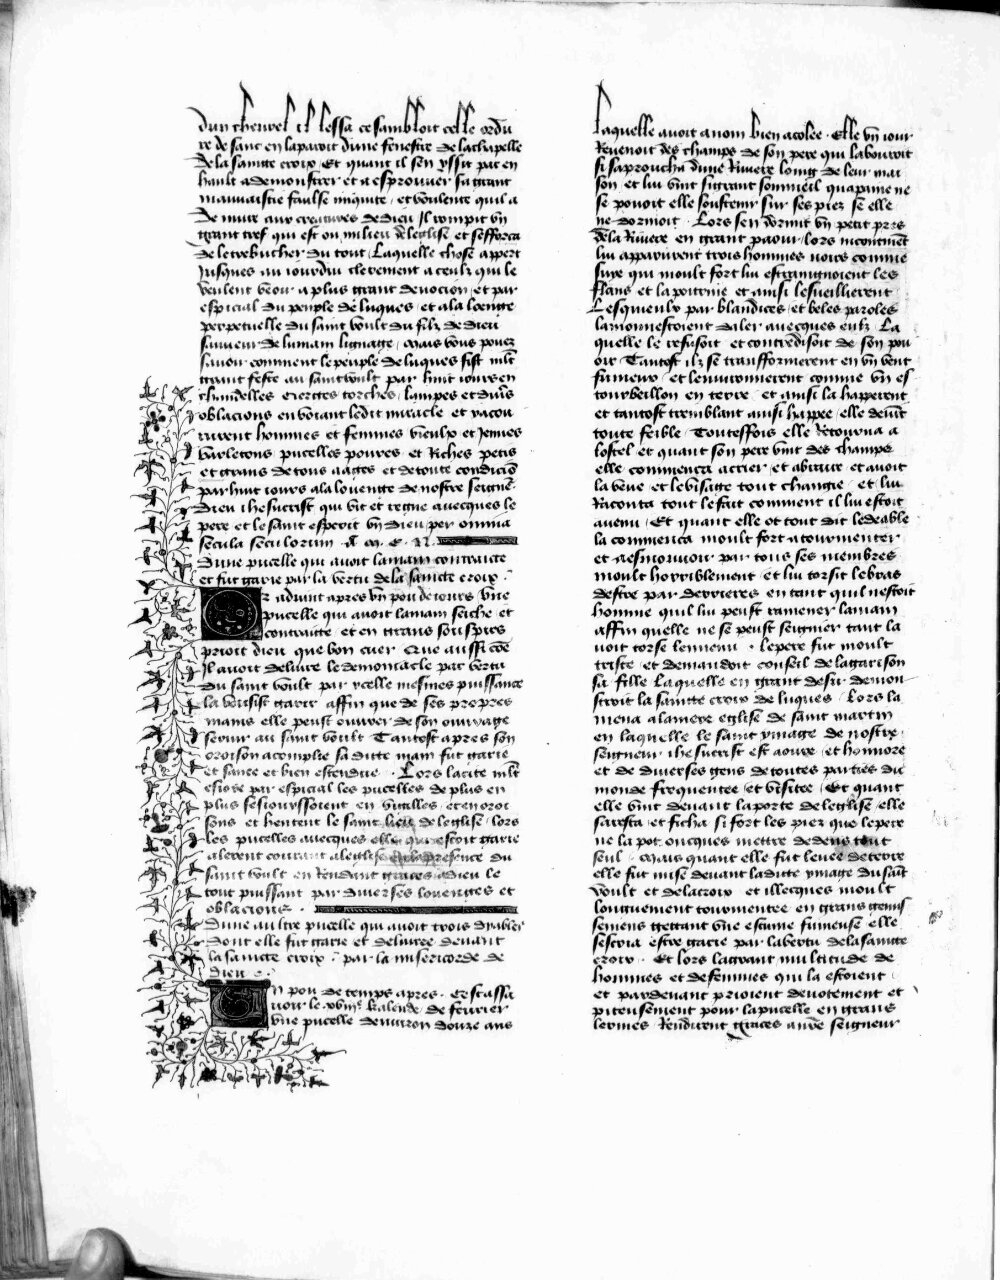 dun chevrel il lessa ce sambloit celle ordu
re de sanc en laparoit dune fenestre de la chapelle
de la saincte croix Et quant il sen yssit par en
hault a demonstrer et a esprouver sa grant
mauvaistie faulse iniquite et voulente quil a
de nuire aux creatures de dieu Il rompit vn
grant tref qui est ou milieu de leglise et sefforca
de le trebucher du tout Laquelle chose appert
Jusques au iourdui clerement a ceulx qui le
veulent veoir a plus grant devocion et par
especial du peuple de luques et a la loenge
perpetuelle du saint voult du filz de dieu
sauveur de lumain lignage Mais vous povez
savoir comment le peuple de luques fist mlt
grant feste au saint voult par huit iours en
chandelles cierges torches lampes et divs
oblacions en voiant ledit miracle et racou
rurent hommes et femmes vieulx et Jennes
varletons pucelles povres et Riches petis
et grans de tous aages et de toute condicio
par huit iours a la louenge de nostre seigne
dieu ihesucrist qui vit et regne avecques le
pere et le saint esperit vn dieu per omnia
secula seculorum A M E N
Dune pucelle qui avoit la main contraicte
et fut garie par la vertu de la saincte croix
Or advint apres vn pou de iours vne
pucelle qui avoit la main seiche et
contraicte et en grans souspirs
prioit dieu que bon cuer Que aussi coe
Il avoit delivre le demoniacle par vertu
du saint voult par ycelle mesmes puissance
la voulsist garir affin que de ses propres
mains elle peust ouvrer de son ouvrage
servir au saint voult Tantost apres son
oroison acomplie sa dicte main fut garie
et sanee et bien estendue Lors la cite mlt
esioye par especial les pucelles de plus en
plus sesioyssoient en vigilles et en oroi
sons et hentent le saint lieu de leglise lors
les pucelles avecques elle qui estoit garie
alerent courant a leglise en la presence du
saint voult en Rendant graces a dieu le
tout puissant par diverses louenges et
oblacions
Dune aultre pucelle qui avoit trois dyables
dont elle fut garie et delivree devant
la saincte croix par la misericorde de
dieu
En pou de temps apres Cest assa
voir le kalende de fevrier
vne pucelle denviron douze ans
Laquelle avoit a nom bien acolee Elle vn iour
Revenoit des champs de son pere qui labouroit
si saproucha dune Riviere loing de leur mai
son et lui vint si grant sommeil qua paine ne
se povoit elle soustenir sur ses piez se elle
ne dormoit Lors sen dormit vn petit pres
de la Riviere en grant paour lors incontinet
lui apparurent trois hommes noirs comme
suye qui moult fort lui estraingnoient les
flans et la poitrine et ainsi lesveillierent
Lesquieulx par blandices et beles paroles
lamonnestoient daler avecques eulx La
quelle le refusoit et contredisoit de son pou
oir Tantost ilz se transformerent en vn vent
fumeux et lenvironnerent comme vn es
tourbeillon en terre et ainsi la happerent
et tantost tremblant ainsi happee elle devit
toute feible Touteffois elle Retourna a
lostel et quant son pere vint des champs
elle commenca a crier et a braire et avoit
la veue et le visage tout changie et lui
Raconta tout le fait comment il lui estoit
avenu Et quant elle ot tout dit le deable
la commenca moult fort a tourmenter
et a esmouvoir par tous ses membres
moult horriblement et lui torsit le bras
destre par derrieres en tant quil nestoit
homme qui lui peust ramener la main
affin quelle ne se peust seignier tant la
voit torse lennemi le pere fut moult
triste et demandoit conseil de la garison
sa fille Laquelle en grant desir demon
stroit la saincte croix de luques Lors la
mena a la mere eglise de saint martin
en laquelle le saint ymage de nostre
seigneur ihesucrist est aoure et honnore
et de diverses gens de toutes parties du
monde frequentee et visitee Et quant
elle vint devant la porte de leglise elle
saresta et ficha si fort les piez que le pere
ne la pot oncques mettre dedens tout
seul Mais quant elle fut levee de terre
elle fut mise devant la dicte ymage du saint
voult et de la croix et illecques moult
longuement tourmentee en grans gemis
semens gettant vne escume fumeuse elle
sescria estre garie par la vertu de la saincte
croix Et lors la grant multitude de
hommes et de femmes qui la estoient
et par devant prioient devotement et
piteusement pour la pucelle en grans
lermes Rendirent graces a nre seigneur